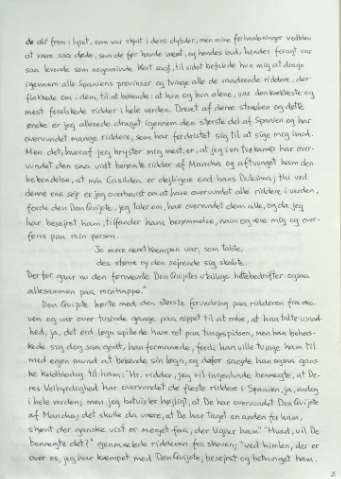 de alt frem i lyset, som var skjult i dens dybder, men mine forhaabninger vedblev
at være saa døde, som de før havde været; og hendes bud, hendes foragt var
saa levende som nogensinde. Kort sagt, til sidst befalede hun mig at drage
igennem alle Spaniens provinser og tvinge alle de vandrende riddere, der
flakkede om i dem, til at bekende: at hun og hun alene, var den kønneste og
mest forelskede ridder i hele verden. Drevet af denne straeben og dette
ønske er jeg allerede draget igennem den største del af Spanien og har
overvundet mange riddere, som har fordristet sig til at sige mig imod.
Men det, hvoraf jeg bryster mig mest, er, at jeg i en tvekamp har over-
vundet den saa vidt berømte ridder af Mancha og aftvunget ham den
bekendelse, at min Casildea er dejligere end hans Dulcinea; thi ved
denne ene sejr er jeg overbevist om at have overvundet alle riddere i verden,
fordi den Don Quijote, jeg taler om, har overvundet dem alle, og da jeg
har besejret ham, tilfalder hans berømmelse, navn og ære mig og over-
føres paa min person.
Jo mere æret kæmpen var, som tabte,
des større ry den sejrende sig skabte.
Derfor gaar nu den fornævnte Don Quijotes utallige heltebedrifter ogsaa
allesammen paa min kappe."
Don Quijote hørte med den største forundring paa ridderen fra sko-
ven og var over tusinde gange paa nippet til at sige, at han talte usand-
hed, ja, det ord løgn spillede ham ret paa tungespidsen, men han behers-
kede sig dog saa godt, han formaaede, fordi han ville tvinge ham til
med egen mund at bekende sin løgn, og derfor sagde han ogsaa gans-
ke koldblodig til ham: "Hr. ridder, jeg vil ingenlunde benægte, at De-
res Velbyrdighed har overvundet de fleste riddere i Spanien, ja, endog
i hele verden; men jeg betvivler højligt, at De har overvundet Don Quijote
af Mancha; det skulle da være, at De har taget en anden for ham,
skønt der ganske vist er meget faa, der ligner ham." "Hvad, vil De
benægte det?" genmælede ridderen fra skoven; "ved himlen, der er
over os, jeg har kæmpet med Don Quijote, besejret og betvunget ham.